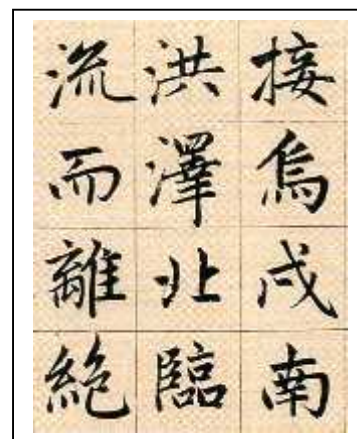 接烏戍南
洪澤北臨
流而離絶